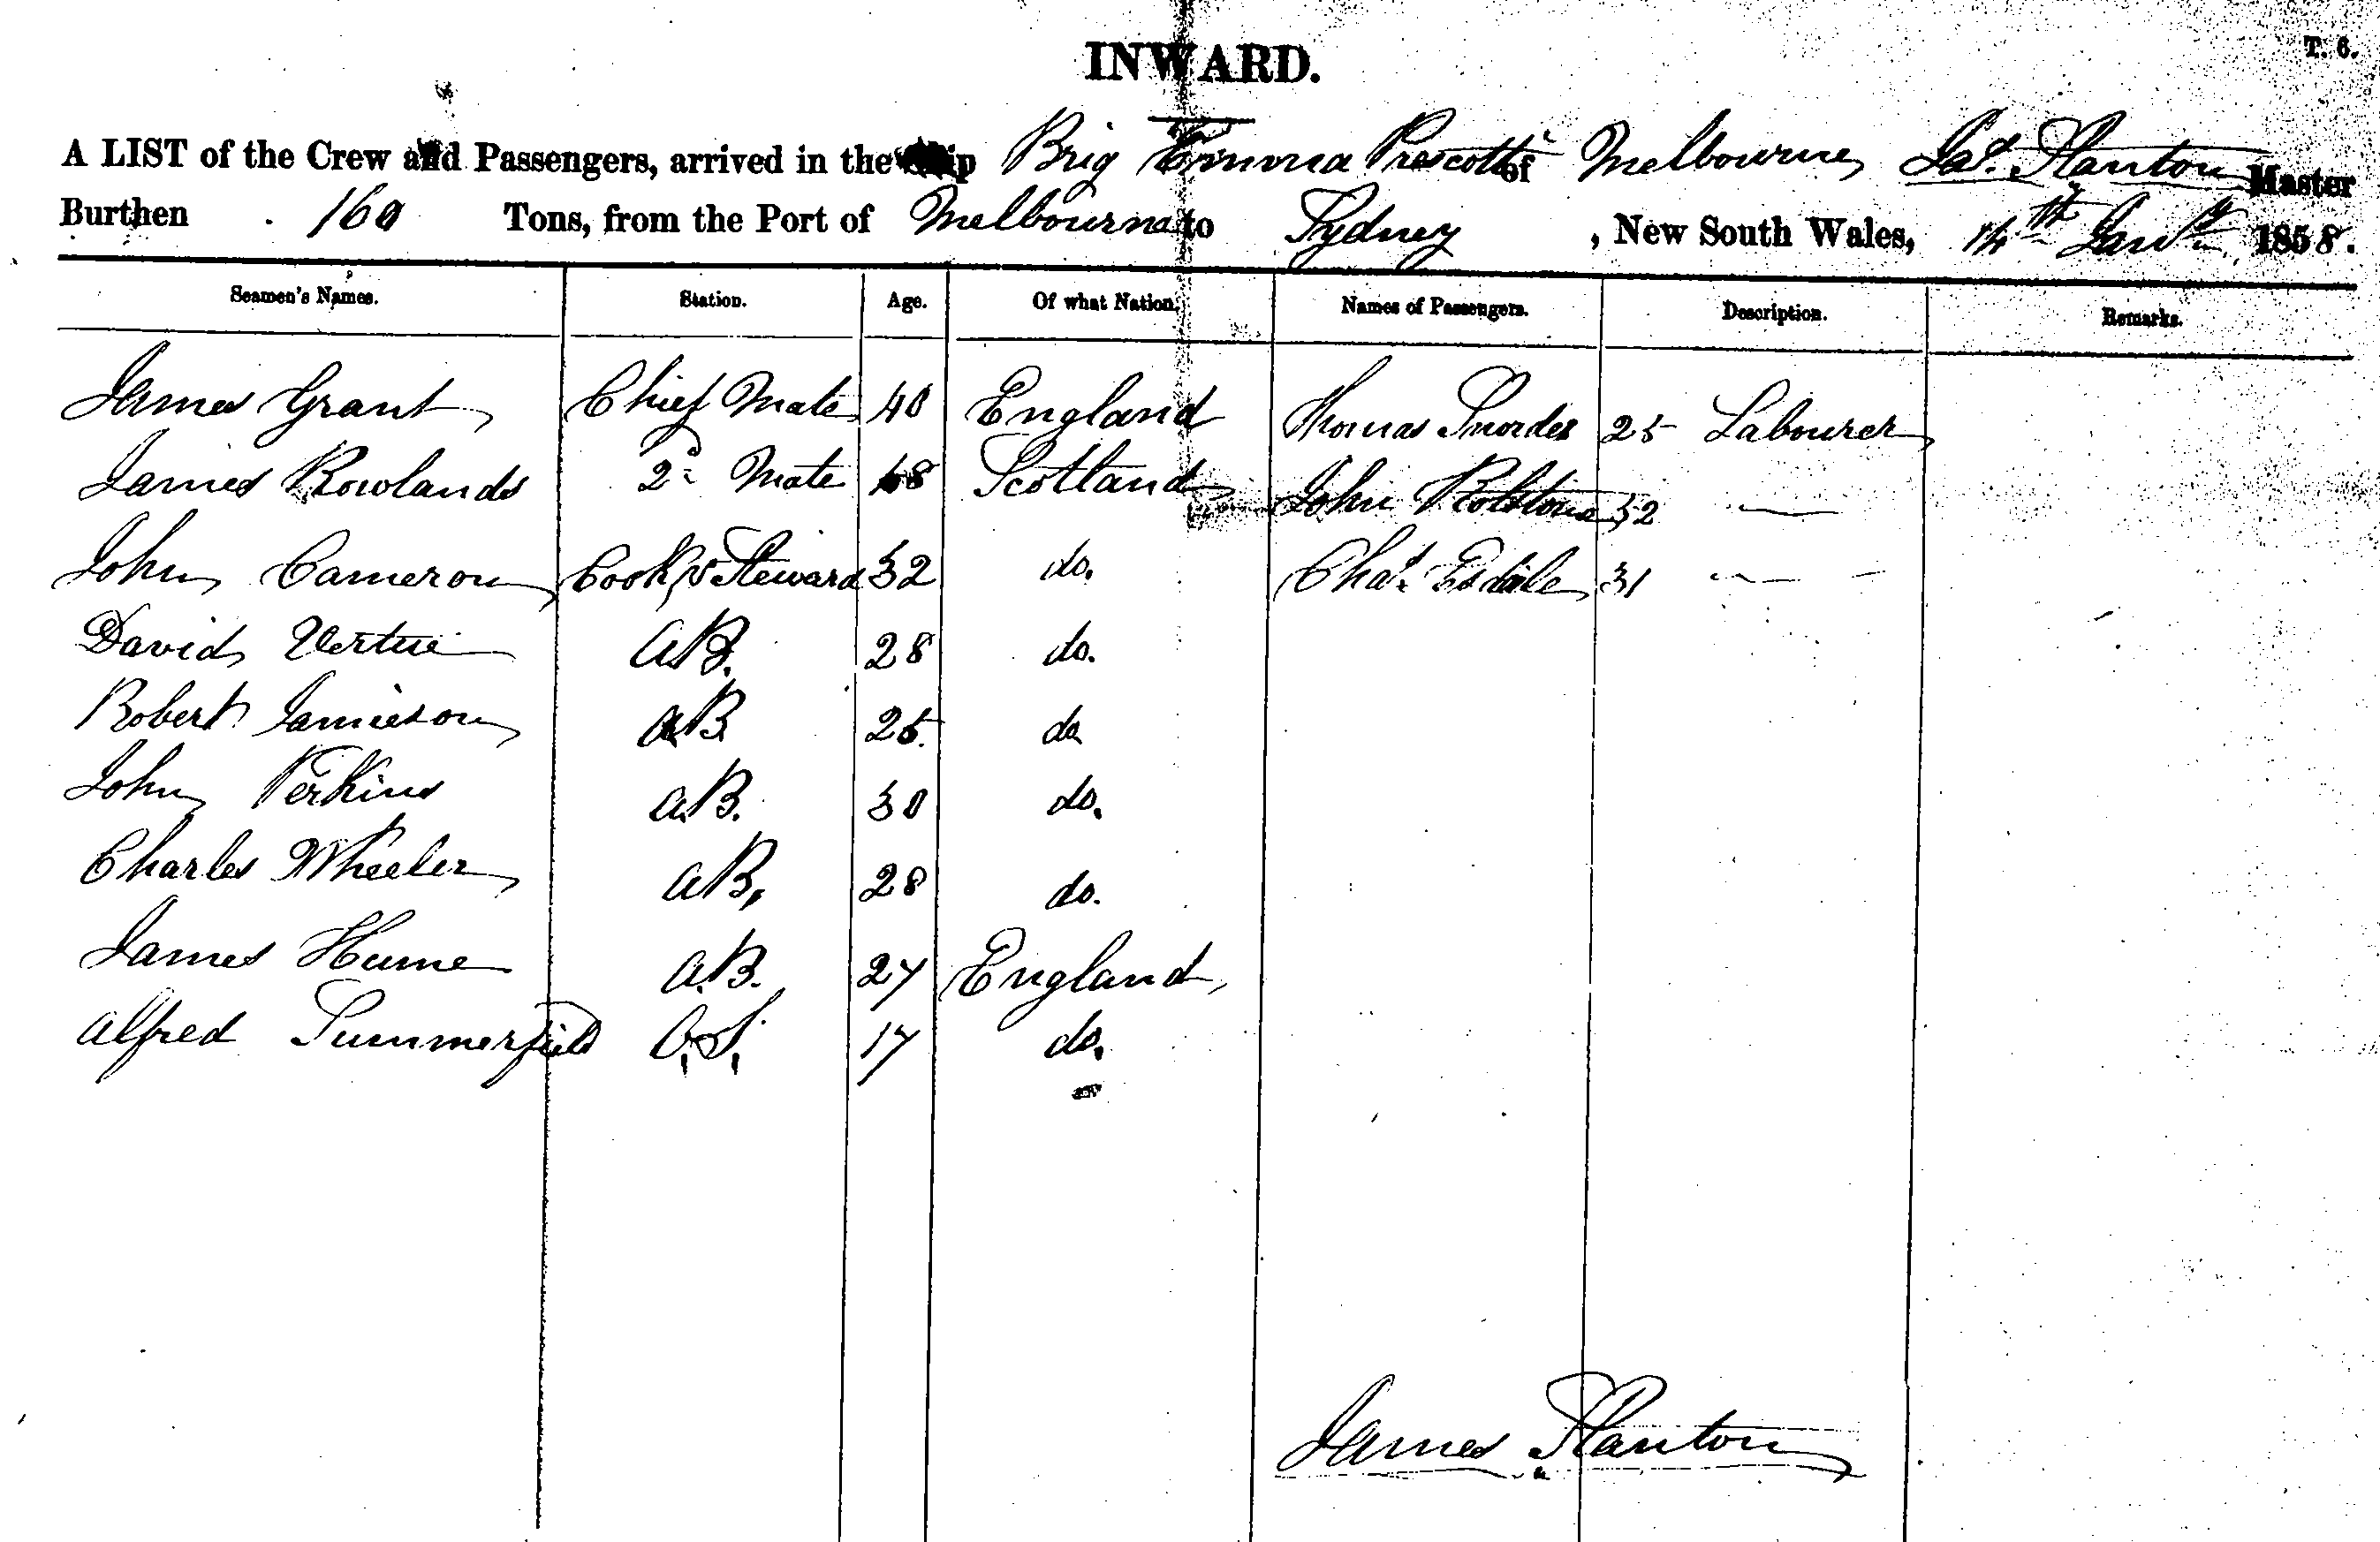 INWARD.
T. 6.
A LIST of the Crew and Passengers, arrived in the Ship Brig Emma Prescott of Melbourne, Jas. Stanton Master
Burthen 160 Tons, from the Port of Melbourne to Sydney , New South Wales, 14th Jany 1858.
Seamen's Names. Station. Age. Of what Nation. Names of Passengers. Description. Remarks.
James Grant Chief Mate 40 England Thomas 25 Labourer
James Rowlands 2d Mate Scotland John 32 —
John Cameron Cook & Steward 32 do. Chas. Esdaile 31 —
David Vertue A.B. 28 do.
Robert Jamieson A.B 25. do
John Perkins A.B. 30 do.
Charles Wheeler A.B. 28 do.
James Hume A.B. 27 England
Alfred Summerfield O.S. 17 do.
James Stanton